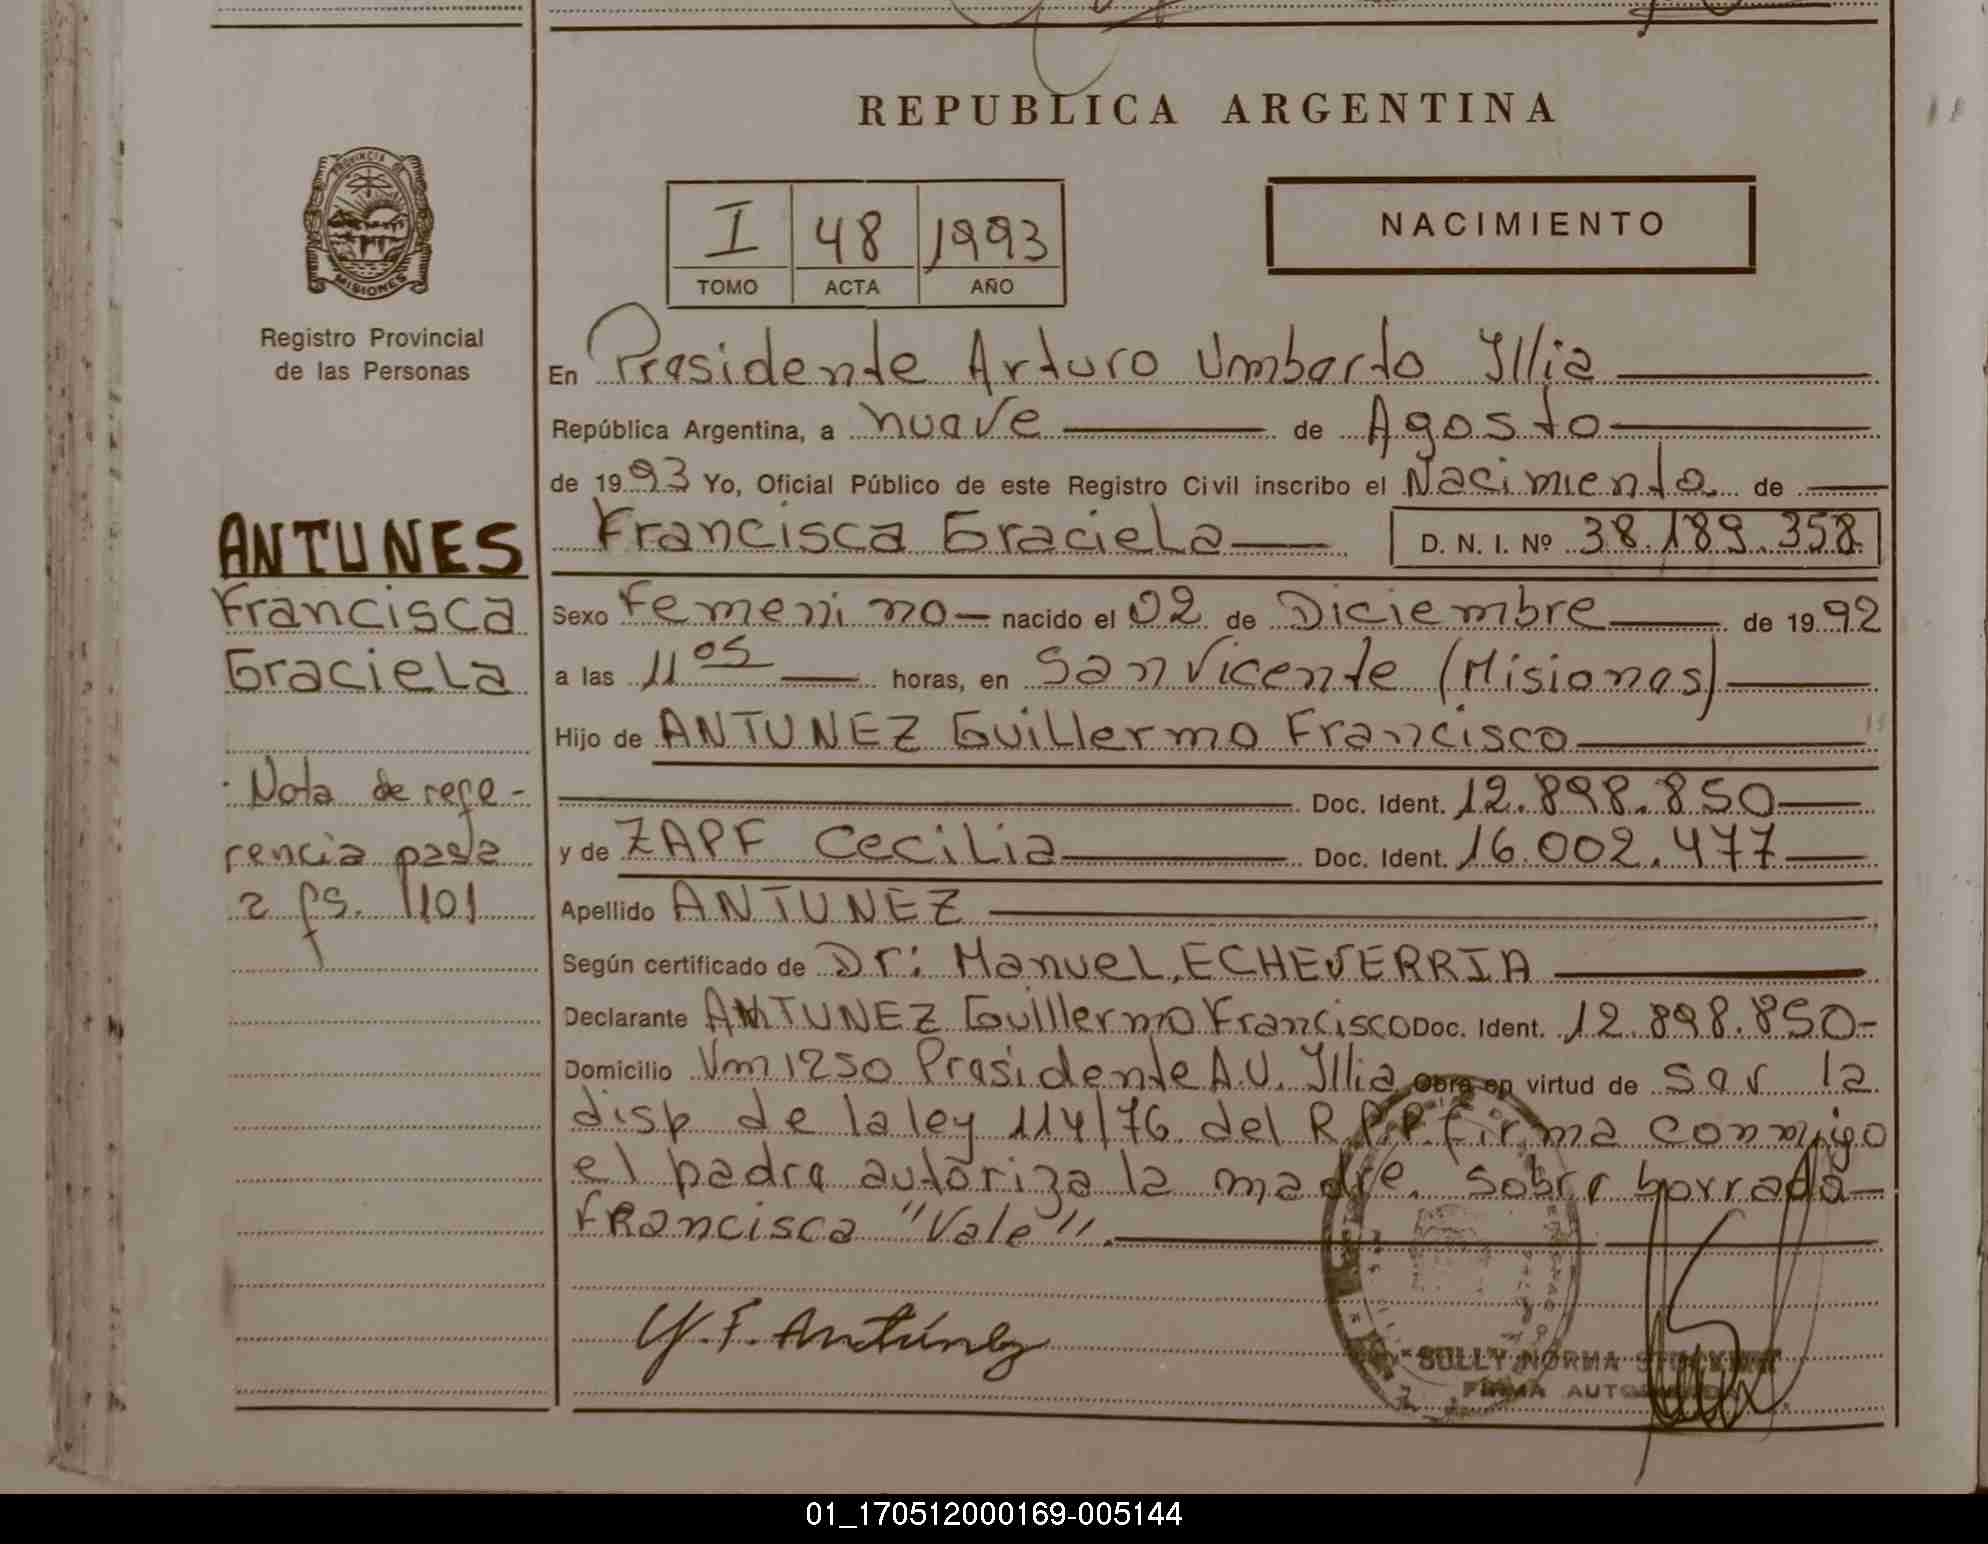 REPUBLICA ARGENTINA
PROVINCIA DE
MISIONES
Registro Provincial
de las Personas
I 48 1993
TOMO ACTA AÑO
NACIMIENTO
En Presidente Arturo Umberto Illia
República Argentina, a nueve de Agosto
de 1993 Yo, Oficial Público de este Registro Civil inscribo el Nacimiento de
Francisca Graciela D. N. I. Nº 38.189.358
Sexo Femenino nacido el 02 de Diciembre de 1992
a las 11 05 horas, en San Vicente (Misiones)
Hijo de ANTUNEZ Guillermo Francisco
Doc. Ident. 12.898.850
y de ZAPF Cecilia Doc. Ident. 16.002.477
Apellido ANTUNEZ
Según certificado de Dr: Manuel ECHEVERRIA
Declarante ANTUNEZ Guillermo Francisco Doc. Ident. 12.898.850
Domicilio Vm 1250 Presidente A.U. Illia Obra en virtud de ser la
disp de la ley 114/76 del R.P.P. firma conmigo
el padre autoriza la madre. Sobre borrado
Francisca "Vale".
G. F. Antúnez
SULLY NORMA
FIRMA
ANTUNES
Francisca
Graciela
Nota de refe-
rencia pasa
a fs. 1101
01_170512000169-005144